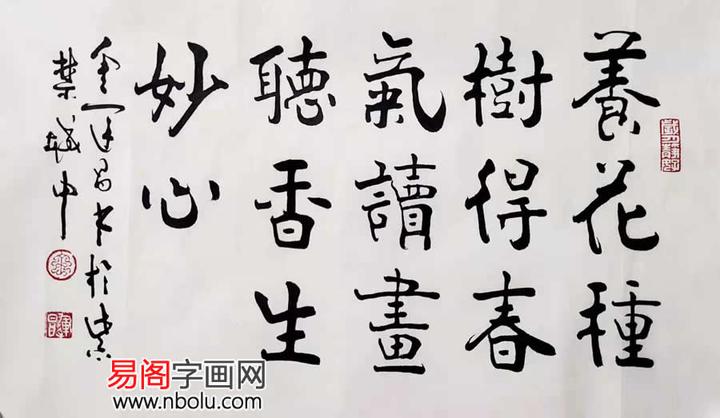 養花種
樹得春
氣讀畫
聽香生
妙心
金運昌书於紫
禁城中
易阁字画网
www.nbolu.com